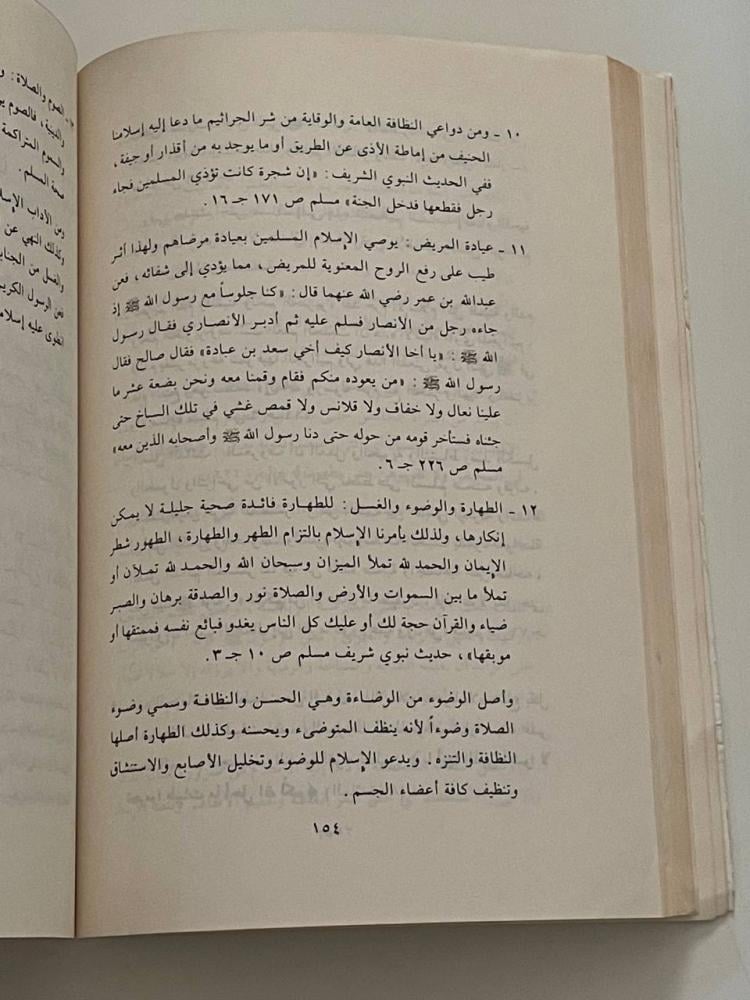 ١٠ - ومن دواعي النظافة العامة والوقاية من شر الجراثيم ما دعا إليه إسلامنا
الحنيف من إماطة الأذى عن الطريق أو ما يوجد به من أقذار أو جيفة ،
ففي الحديث النبوي الشريف : «إن شجرة كانت تؤذي المسلمين فجاء
رجل فقطعها فدخل الجنة» مسلم ص ١٧١ جـ ١٦ .
١١ - عيادة المريض : يوصي الإسلام المسلمين بعيادة مرضاهم ولهذا أثر
طيب على رفع الروح المعنوية للمريض ، مما يؤدي إلى شفائه ، فعن
عبدالله بن عمر رضي الله عنهما قال : «كنا جلوساً مع رسول الله ﷺ إذ
جاءه رجل من الأنصار فسلم عليه ثم أدبر الأنصاري فقال رسول
الله ﷺ : «يا أخا الأنصار كيف أخي سعد بن عبادة» فقال صالح فقال
رسول الله ﷺ : «من يعوده منكم فقام وقمنا معه ونحن بضعة عشر ما
علينا نعال ولا خفاف ولا قلانس ولا قمص غشي في تلك الساخ حتى
جئناه فستأخر قومه من حوله حتى دنا رسول الله ﷺ وأصحابه الذين معه»
مسلم ص ٢٢٦ جـ ٦ .
١٢ - الطهارة والوضوء والغسل : للطهارة فائدة صحية جليلة لا يمكن
إنكارها ، ولذلك يأمرنا الإسلام بالتزام الطهر والطهارة ، الطهور شطر
الإيمان والحمد لله تملأ الميزان وسبحان الله والحمد لله تملآن أو
تملأ ما بين السموات والأرض والصلاة نور والصدقة برهان والصبر
ضياء والقرآن حجة لك أو عليك كل الناس يغدو فبائع نفسه فممتقها أو
موبقها» ، حديث نبوي شريف مسلم ص ١٠ جـ ٣ .
وأصل الوضوء من الوضاءة وهي الحسن والنظافة وسمي وضوء
الصلاة وضوءاً لأنه ينظف المتوضىء ويحسنه وكذلك الطهارة أصلها
النظافة والتنزه . ويدعو الإسلام للوضوء وتخليل الأصابع والاستنشاق
وتنظيف كافة أعضاء الجسم .
١٥٤
الصوم والصلاة :
فالصوم
والسموم المتراكمة
صحة المسلم .
ومن الآداب
وكذلك النهي عن
والغسل من
فعن الرسول
انطوى عليه